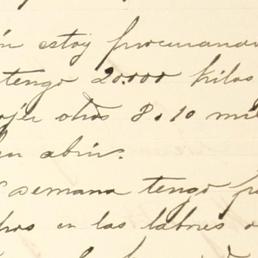 estoy procurando
tengo 20.000 kilos
otros 8.10 mil
abrir.
semana tengo
en las labores